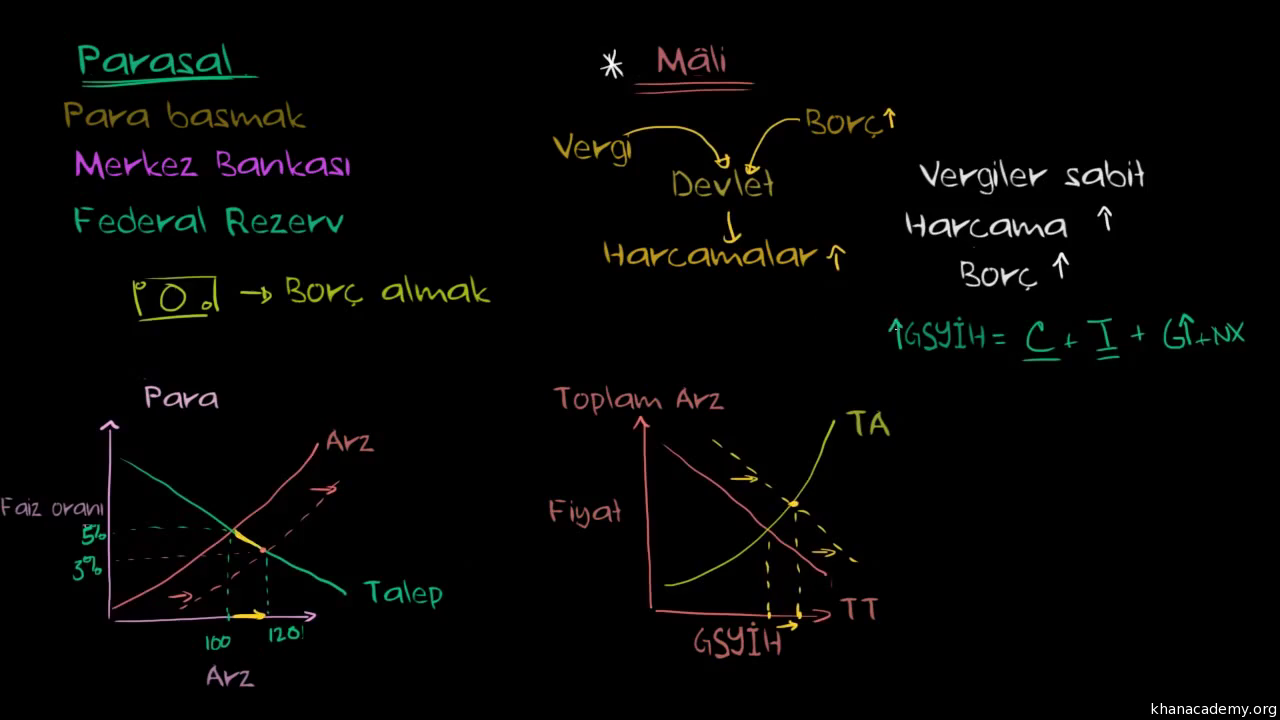 Parasal
Para basmak
Merkez Bankası
Federal Rezerv
O → Borç almak
* Mâli
Vergi
Borç↑
Devlet
Harcamalar ↑
Vergiler sabit
Harcama ↑
Borç ↑
↑GSYİH = C + I + G↑ + NX
Para
Arz
Faiz oranı
5%
3%
Talep
100
120
Arz
Toplam Arz
TA
Fiyat
TT
GSYİH
khanacademy.org